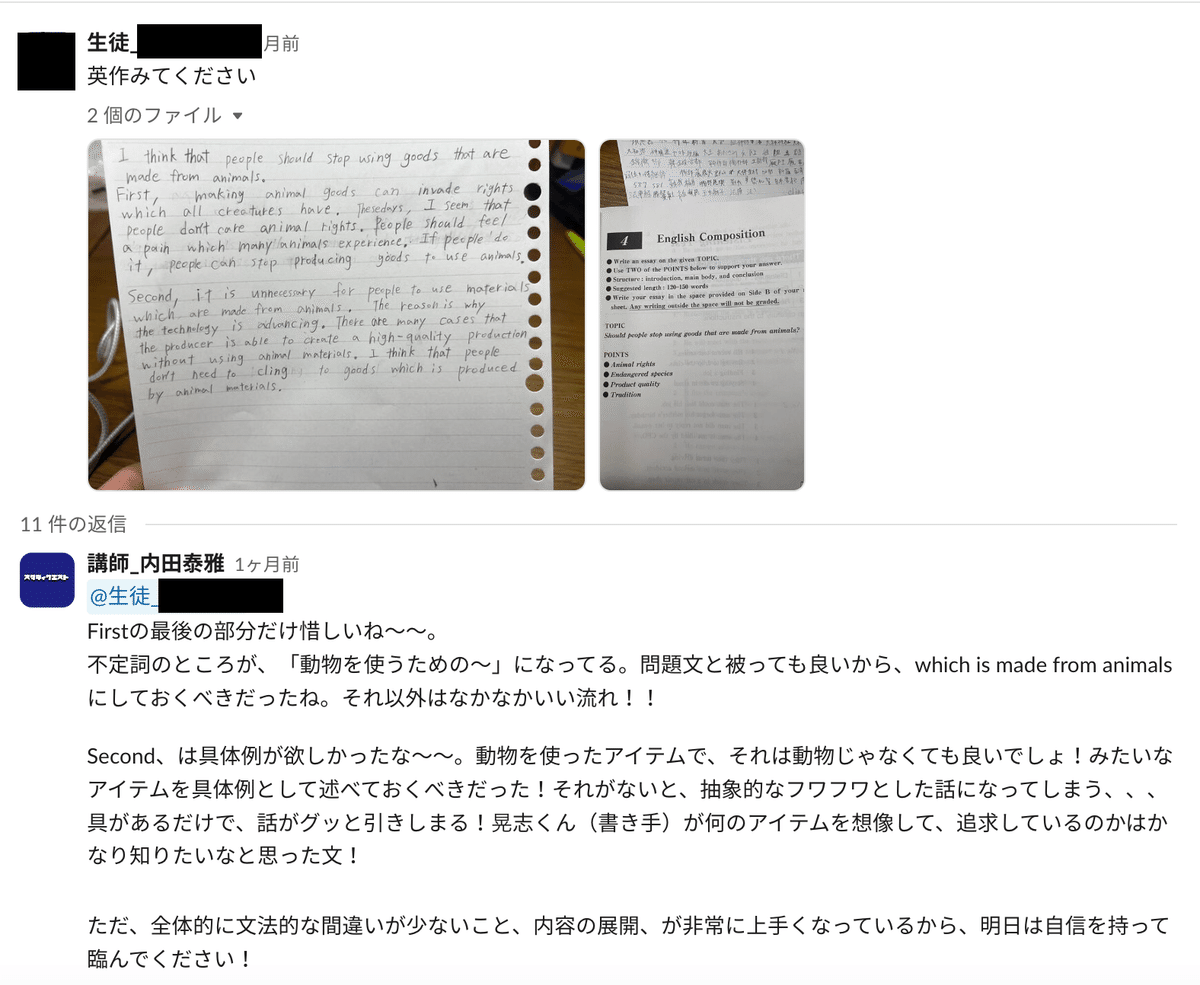 生徒_
月前
英作みてください
2 個のファイル
I think that people should stop using goods that are
made from animals.
First, making animal goods can invade rights
which all creatures have. Thesedays, I seem that
people don't care animal rights. People should feel
a pain which many animals experience. If people do
it, people can stop producing goods to use animals.
Second, it is unnecessary for people to use materials
which are made from animals. The reason is why
the technology is advancing. There are many cases that
the producer is able to create a high-quality production
without using animal materials. I think that people
don't need to cling to goods which is produced
by animal materials.
4 English Composition
● Write an essay on the given TOPIC.
● Use TWO of the POINTS below to support your answer.
● Structure : introduction, main body, and conclusion
● Suggested length : 120-150 words
● Write your essay in the space provided on Side B of your
sheet. Any writing outside the space will not be graded.
TOPIC
Should people stop using goods that are made from animals?
POINTS
● Animal rights
● Endangered species
● Product quality
● Tradition
11 件の返信
スタディクエスト
講師_内田泰雅 1ヶ月前
@生徒_
Firstの最後の部分だけ惜しいね〜〜。
不定詞のところが、「動物を使うための〜」になってる。問題文と被っても良いから、which is made from animals
にしておくべきだったね。それ以外はなかなかいい流れ！！
Second、は具体例が欲しかったな〜〜。動物を使ったアイテムで、それは動物じゃなくても良いでしょ！みたいな
アイテムを具体例として述べておくべきだった！それがないと、抽象的なフワフワとした話になってしまう、、、
具があるだけで、話がグッと引きしまる！晃志くん（書き手）が何のアイテムを想像して、追求しているのかはか
なり知りたいなと思った文！
ただ、全体的に文法的な間違いが少ないこと、内容の展開、が非常に上手くなっているから、明日は自信を持って
臨んでください！